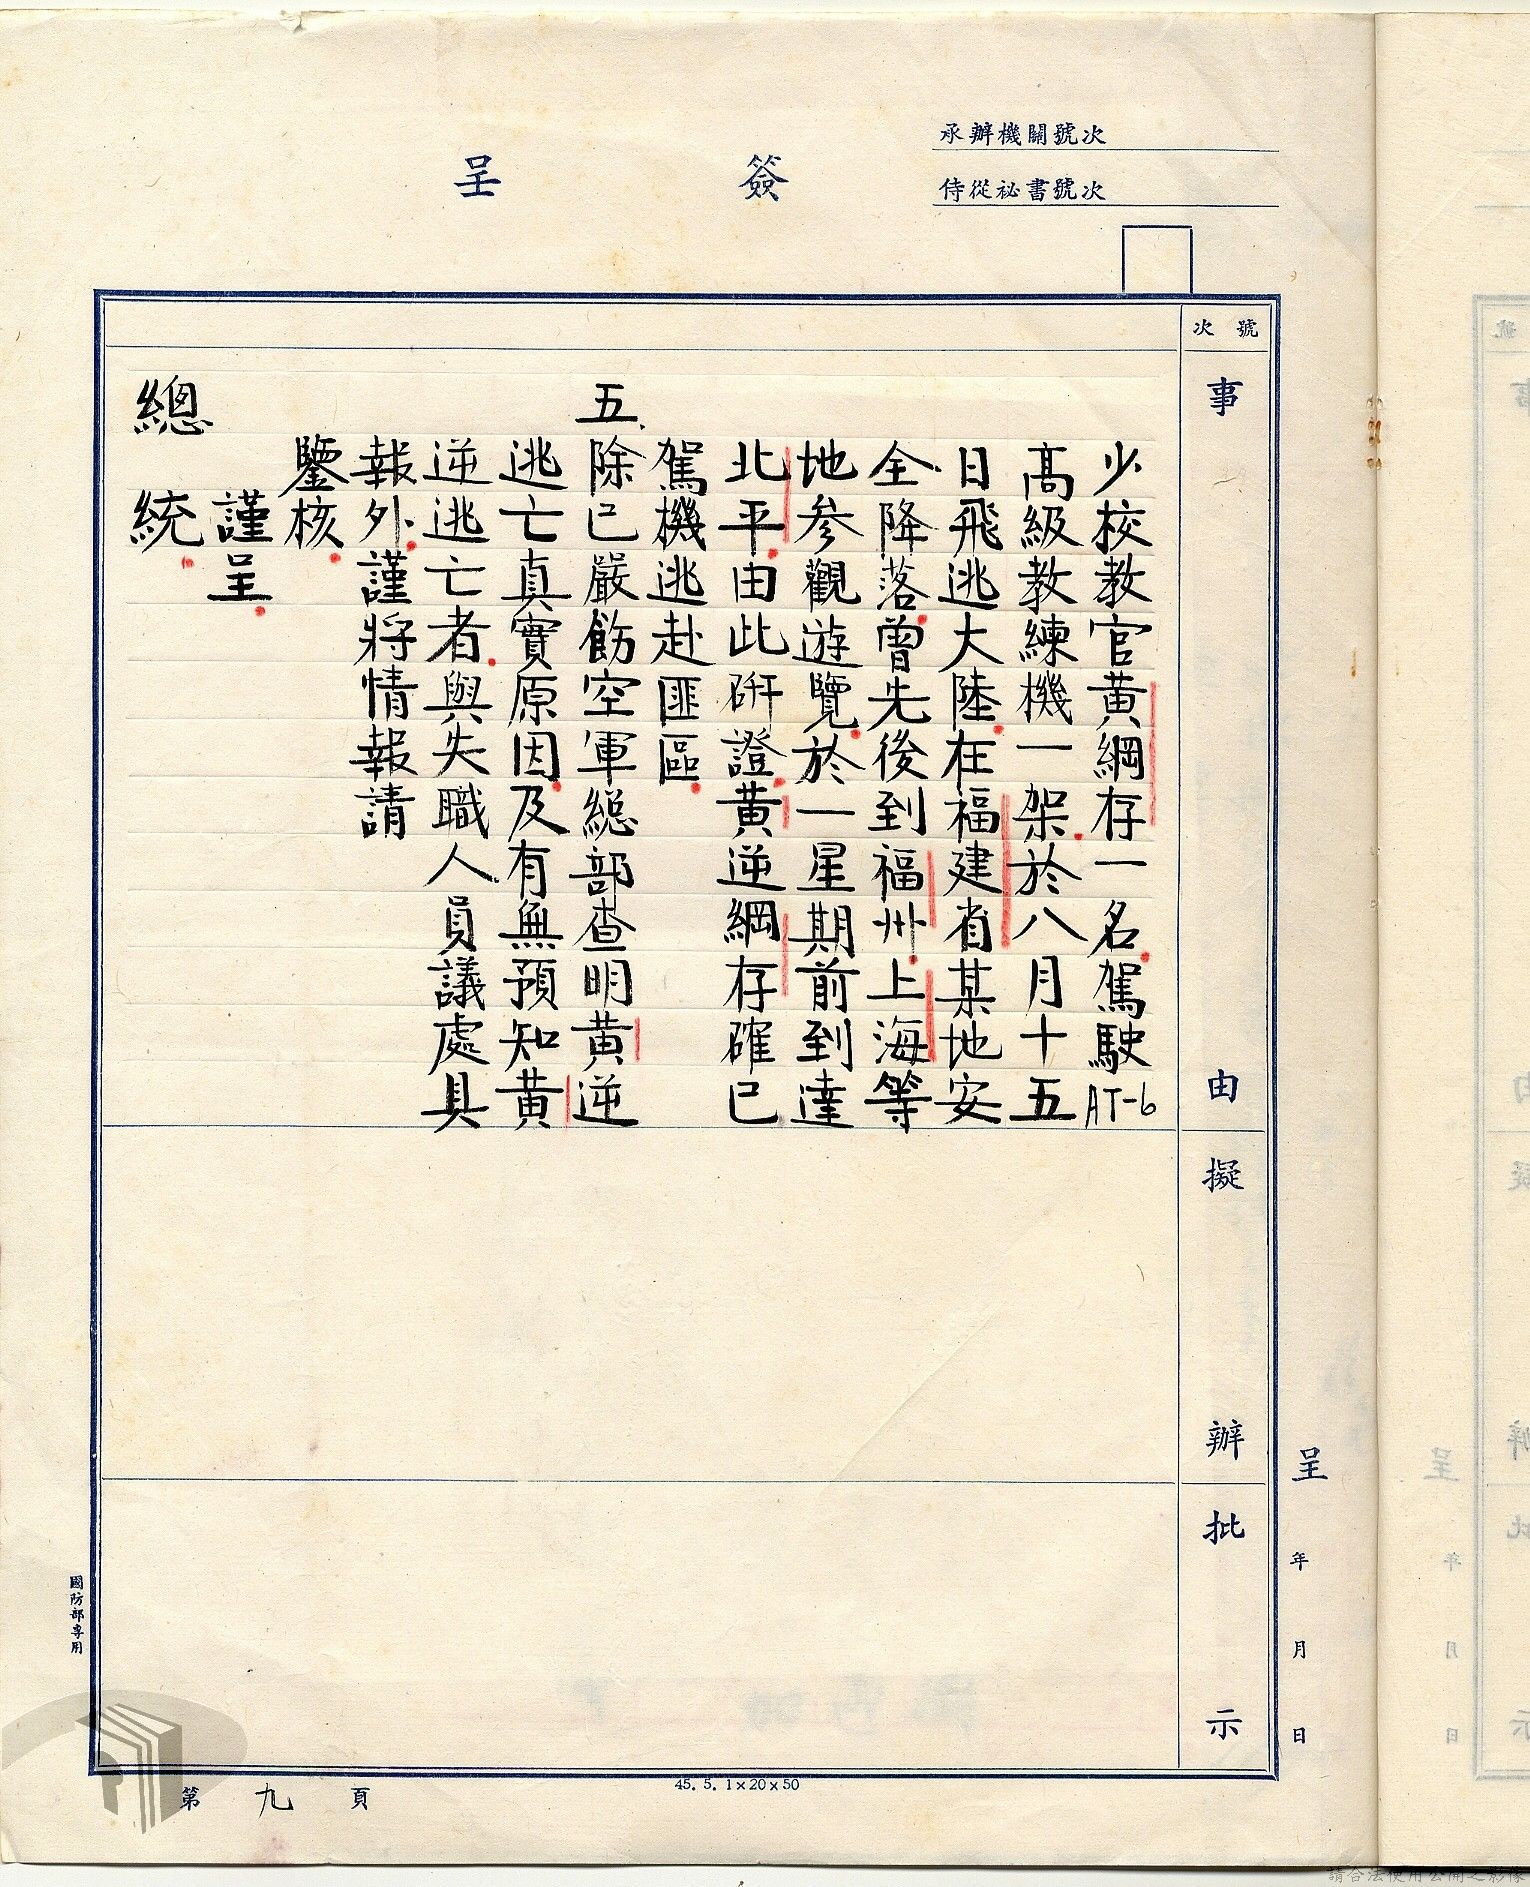 承辦機關號次
侍從祕書號次
簽呈
號次
事由
擬辦
批示
少校教官黃綱存一名駕駛AT-6
高級教練機一架於八月十五
日飛逃大陸在福建省某地安
全降落曾先後到福州上海等
地參觀遊覽於一星期前到達
北平由此研證黃逆綱存確已
駕機逃赴匪區
五、除已嚴飭空軍總部查明黃逆
逃亡真實原因及有無預知黃
逆逃亡者與失職人員議處具
報外謹將情報請
鑒核
謹呈
總統
呈 年 月 日
國防部專用
第九頁
45. 5. 1×20×50
請合法使用公開之影像